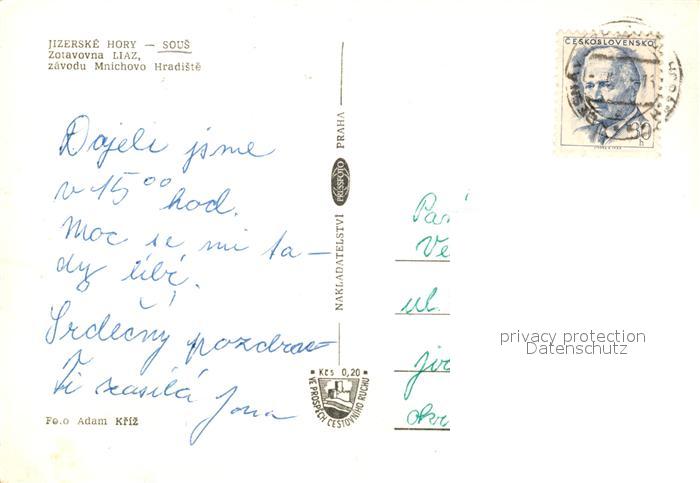 JIZERSKÉ HORY — SOUŠ
Zotavovna LIAZ,
závodu Mnichovo Hradiště
Dojeli jsme
v 15⁰⁰ hod.
Moc se mi ta–
dy líbí.
Srdečný pozdrav
Ti zasílá Jana
Fo.o Adam Kříž
NAKLADATELSTVÍ PRESSFOTO PRAHA
Kčs 0,20
VE PROSPĚCH CESTOVNÍHO RUCHU
ČESKOSLOVENSKO
30
h
Paní
Ve
ul.
okr
privacy protection
Datenschutz